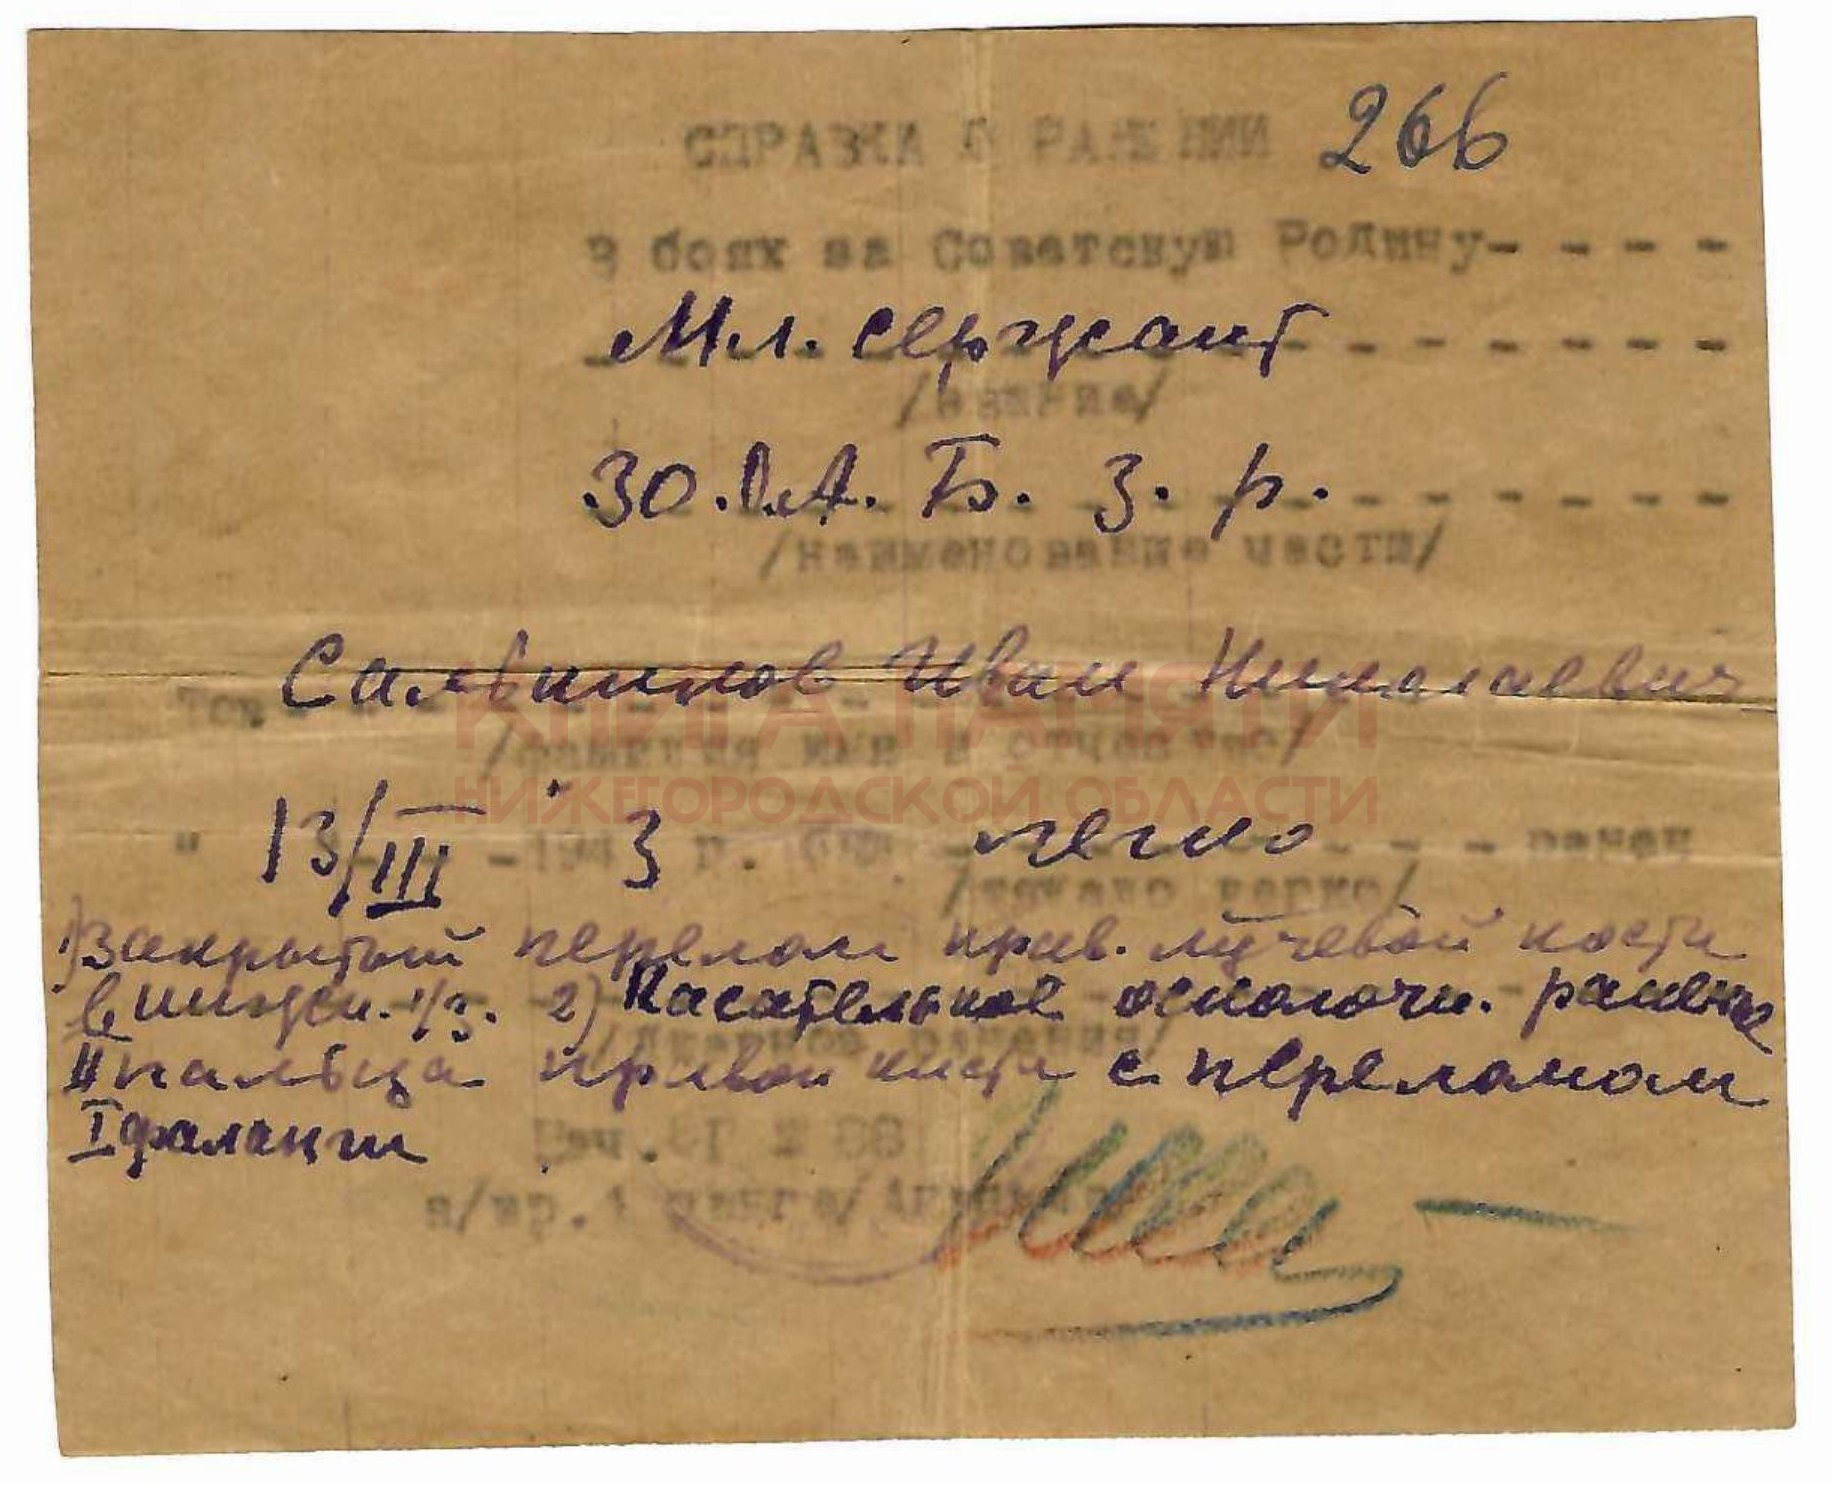 СПРАВКА О РАНЕНИИ 266
В боях за Советскую Родину- - - - -
Мл. сержант
/звание/
30. А. Б. З. р.
/наименование части/
Тов. Сальников Иван Николаевич
/фамилия имя и отчество/
КНИГА ПАМЯТИ
НИЖЕГОРОДСКОЙ ОБЛАСТИ
" 13/III - 1943 г. был легко - - - ранен
/тяжело легко/
1) Закрытый перелом прав. лучевой кости
в нижн. 1/3. 2) Касательное осколочн. ранение
II пальца правой кисти с переломом
I фаланги
/ранения/
Нач.
в/вр. ранга/